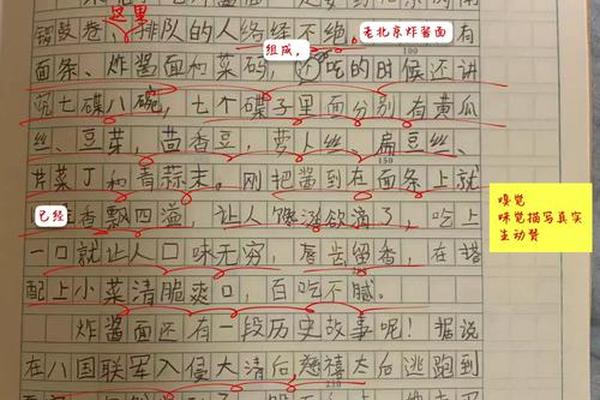 这里
锣鼓巷、排队的人络绎不绝。老北京炸酱面有
组成,
100
面条、炸酱面和菜码,吃的时候还讲
究七碟八碗,七个碟子里面分别有黄瓜
丝、豆芽,茴香豆,萝卜丝、扁豆丝、
150
芹菜丁和青蒜末。刚把酱到在面条上就
已经香飘四溢,让人馋涎欲滴了,吃上
嗅觉
味觉描写真实
生动赞
一口就让人口味无穷,唇齿留香,在搭
配上小菜清脆爽口,百吃不腻。
炸酱面还有一段历史故事呢!据说
在八国联军入侵大清后,慈禧太后逃跑到
210